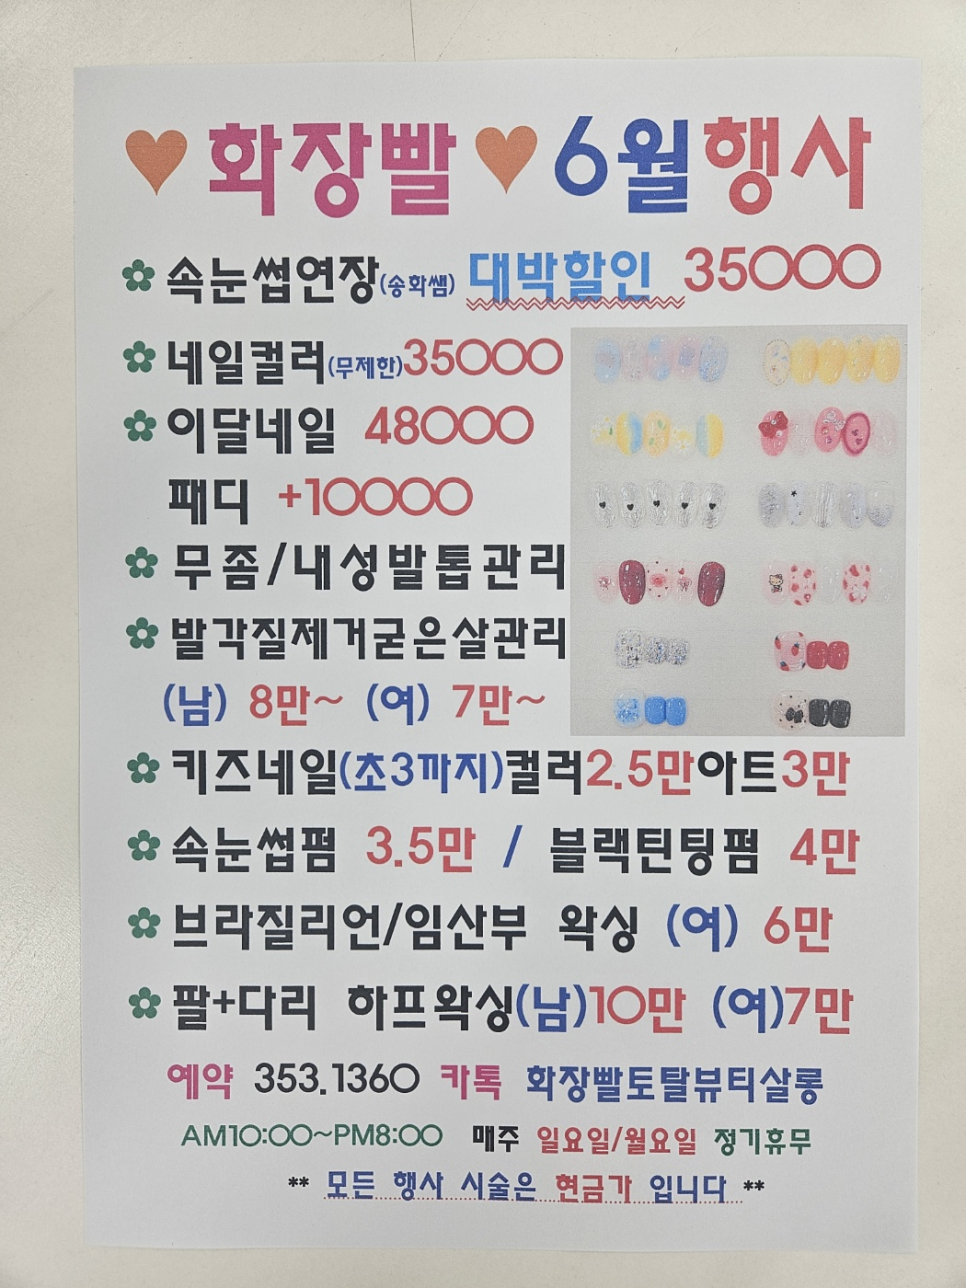 ♥화장빨♥6월행사
속눈썹연장(송화쌤) 대박할인 35000
네일컬러(무제한)35000
이달네일 48000
패디 +10000
무좀/내성발톱관리
발각질제거굳은살관리
(남) 8만~ (여) 7만~
키즈네일(초3까지)컬러2.5만아트3만
속눈썹펌 3.5만 / 블랙틴팅펌 4만
브라질리언/임산부 왁싱 (여) 6만
팔+다리 하프왁싱(남)10만 (여)7만
예약 353.1360 카톡 화장빨토탈뷰티살롱
AM10:00~PM8:00 매주 일요일/월요일 정기휴무
** 모든 행사 시술은 현금가 입니다 **